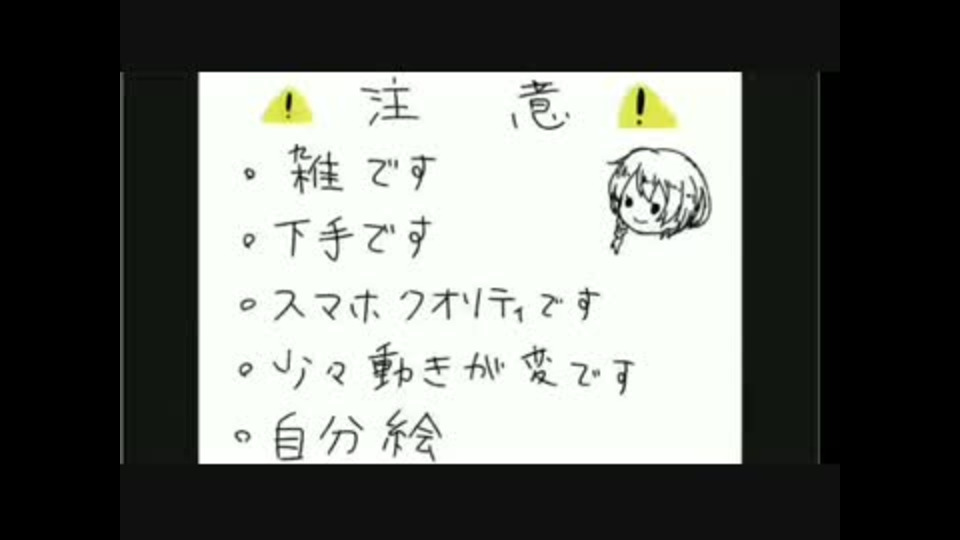 ! 注 意 !
。雑です
。下手です
。スマホクオリティです
。少々動きが変です
。自分絵